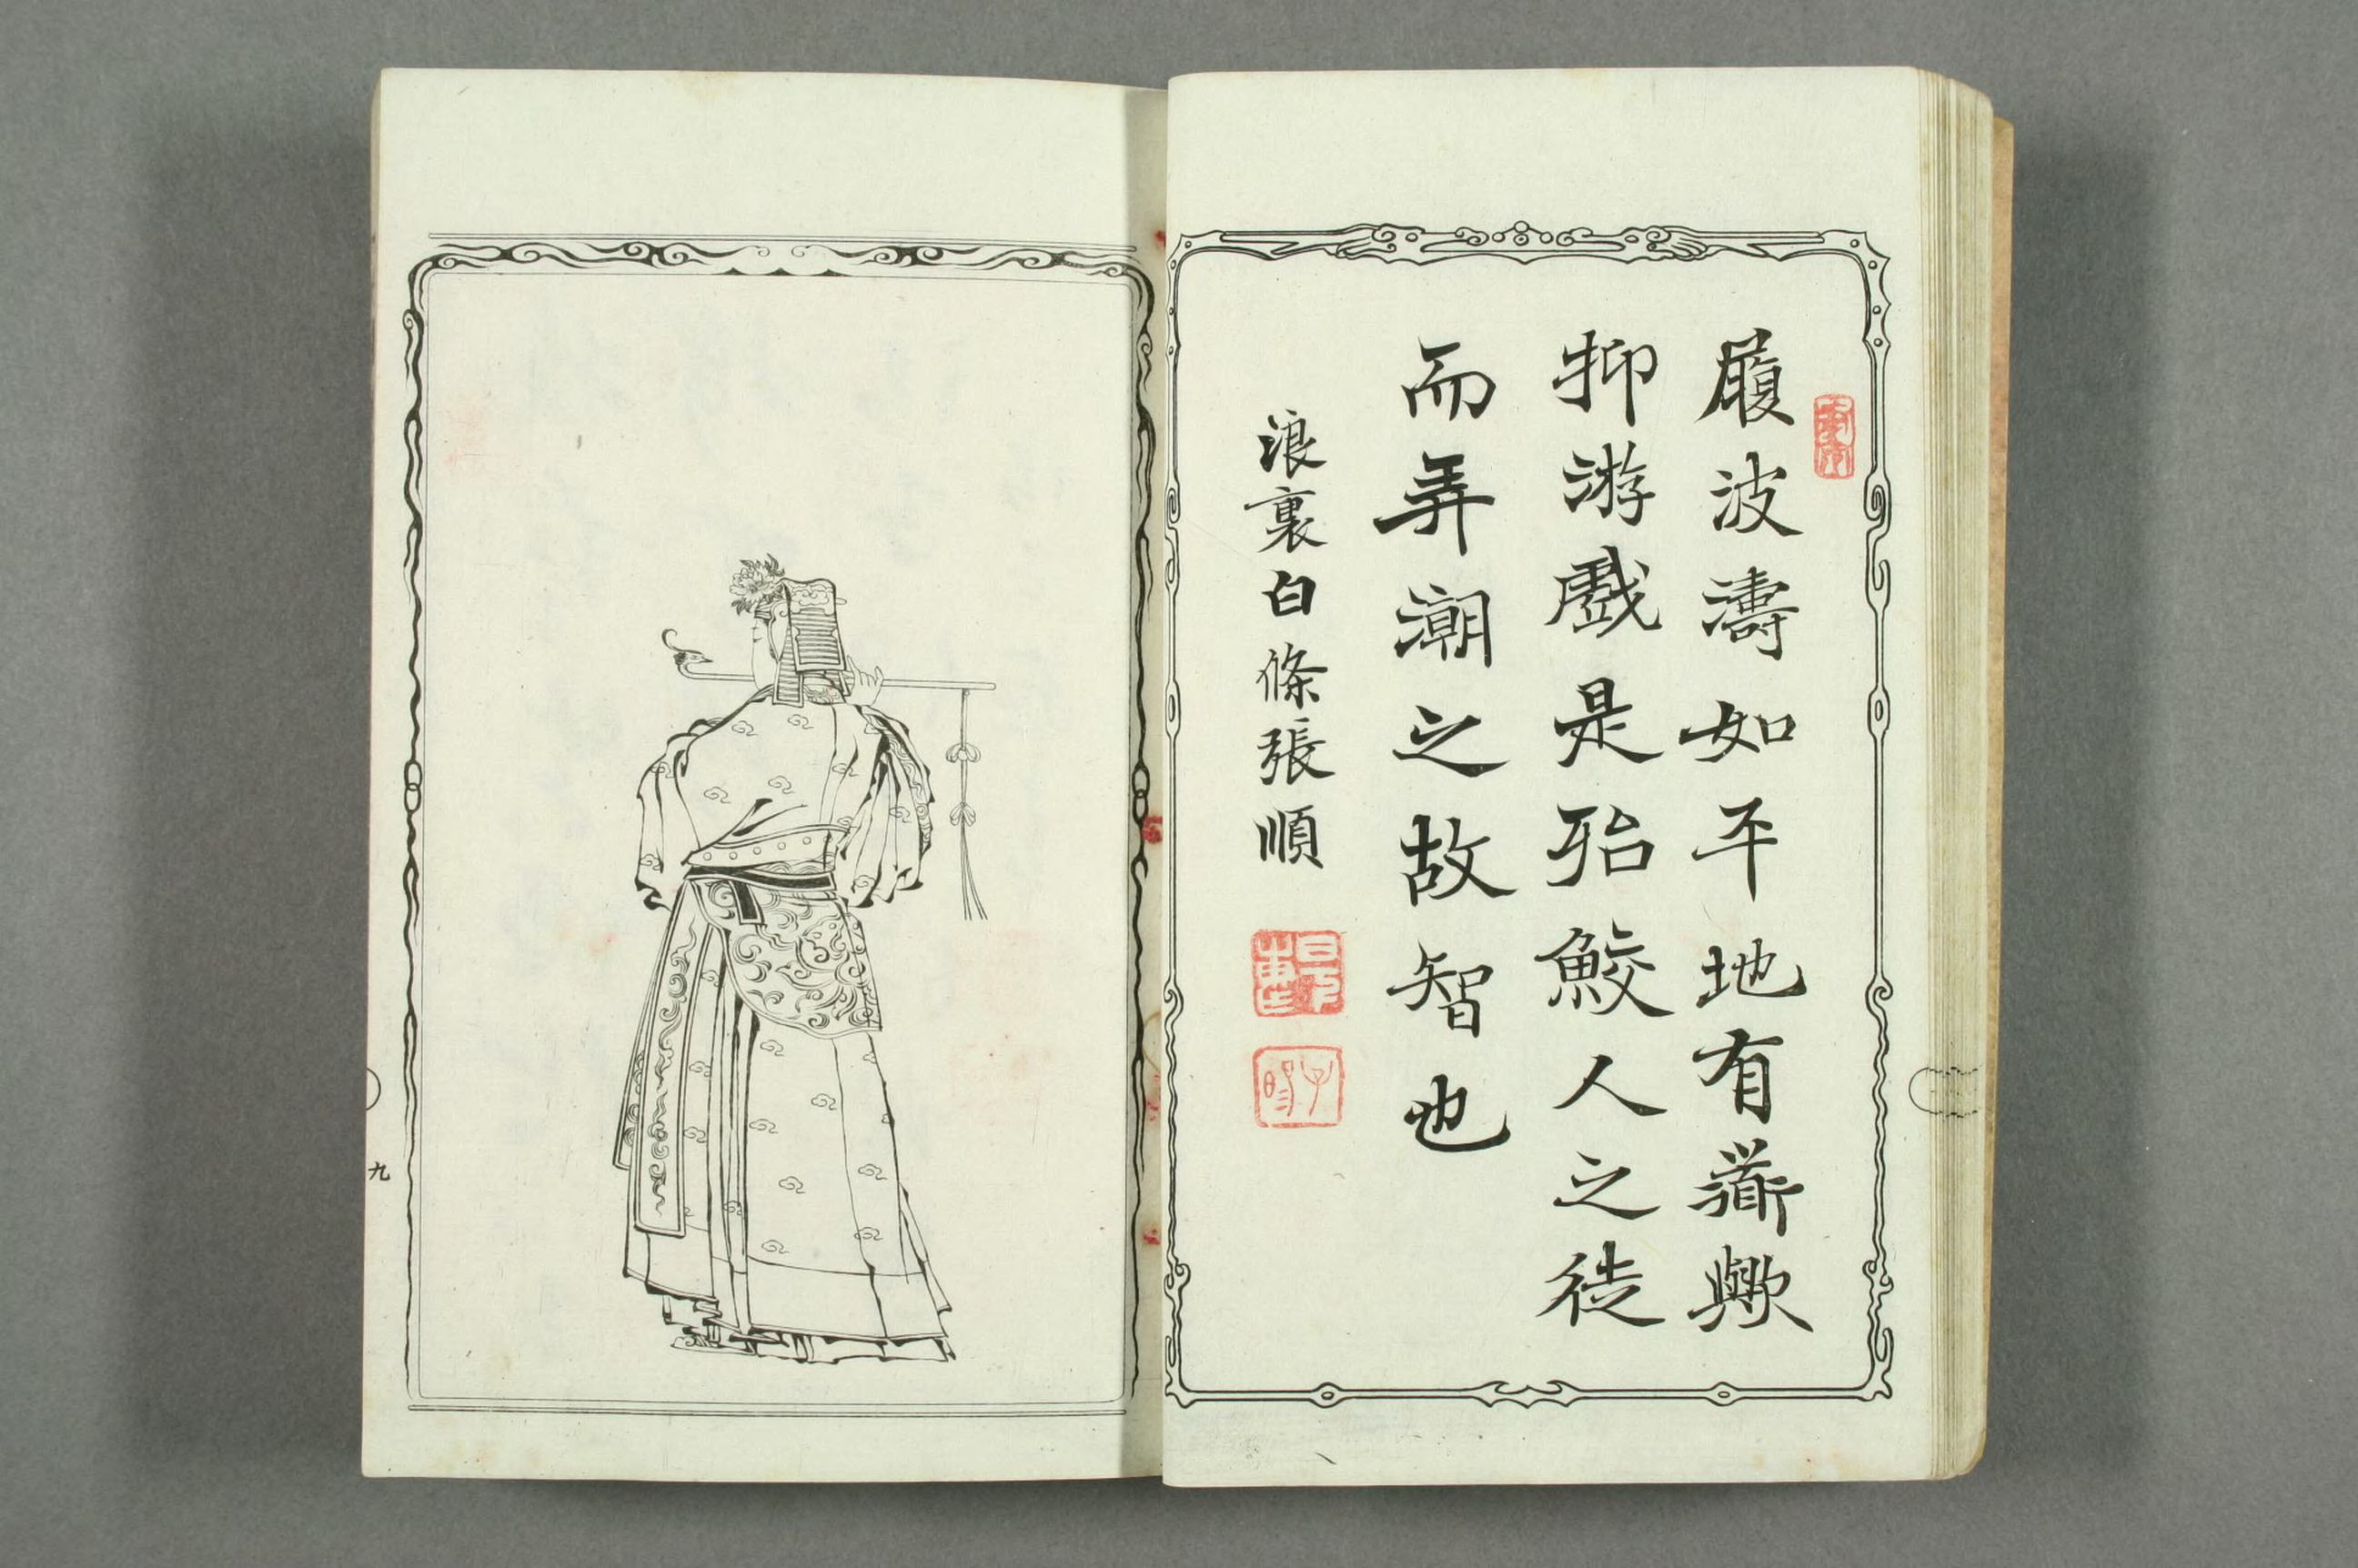 履波濤如平地有衜歟
抑游戲是殆鮫人之徒
而弄潮之故智也
浪裏白條張順
九